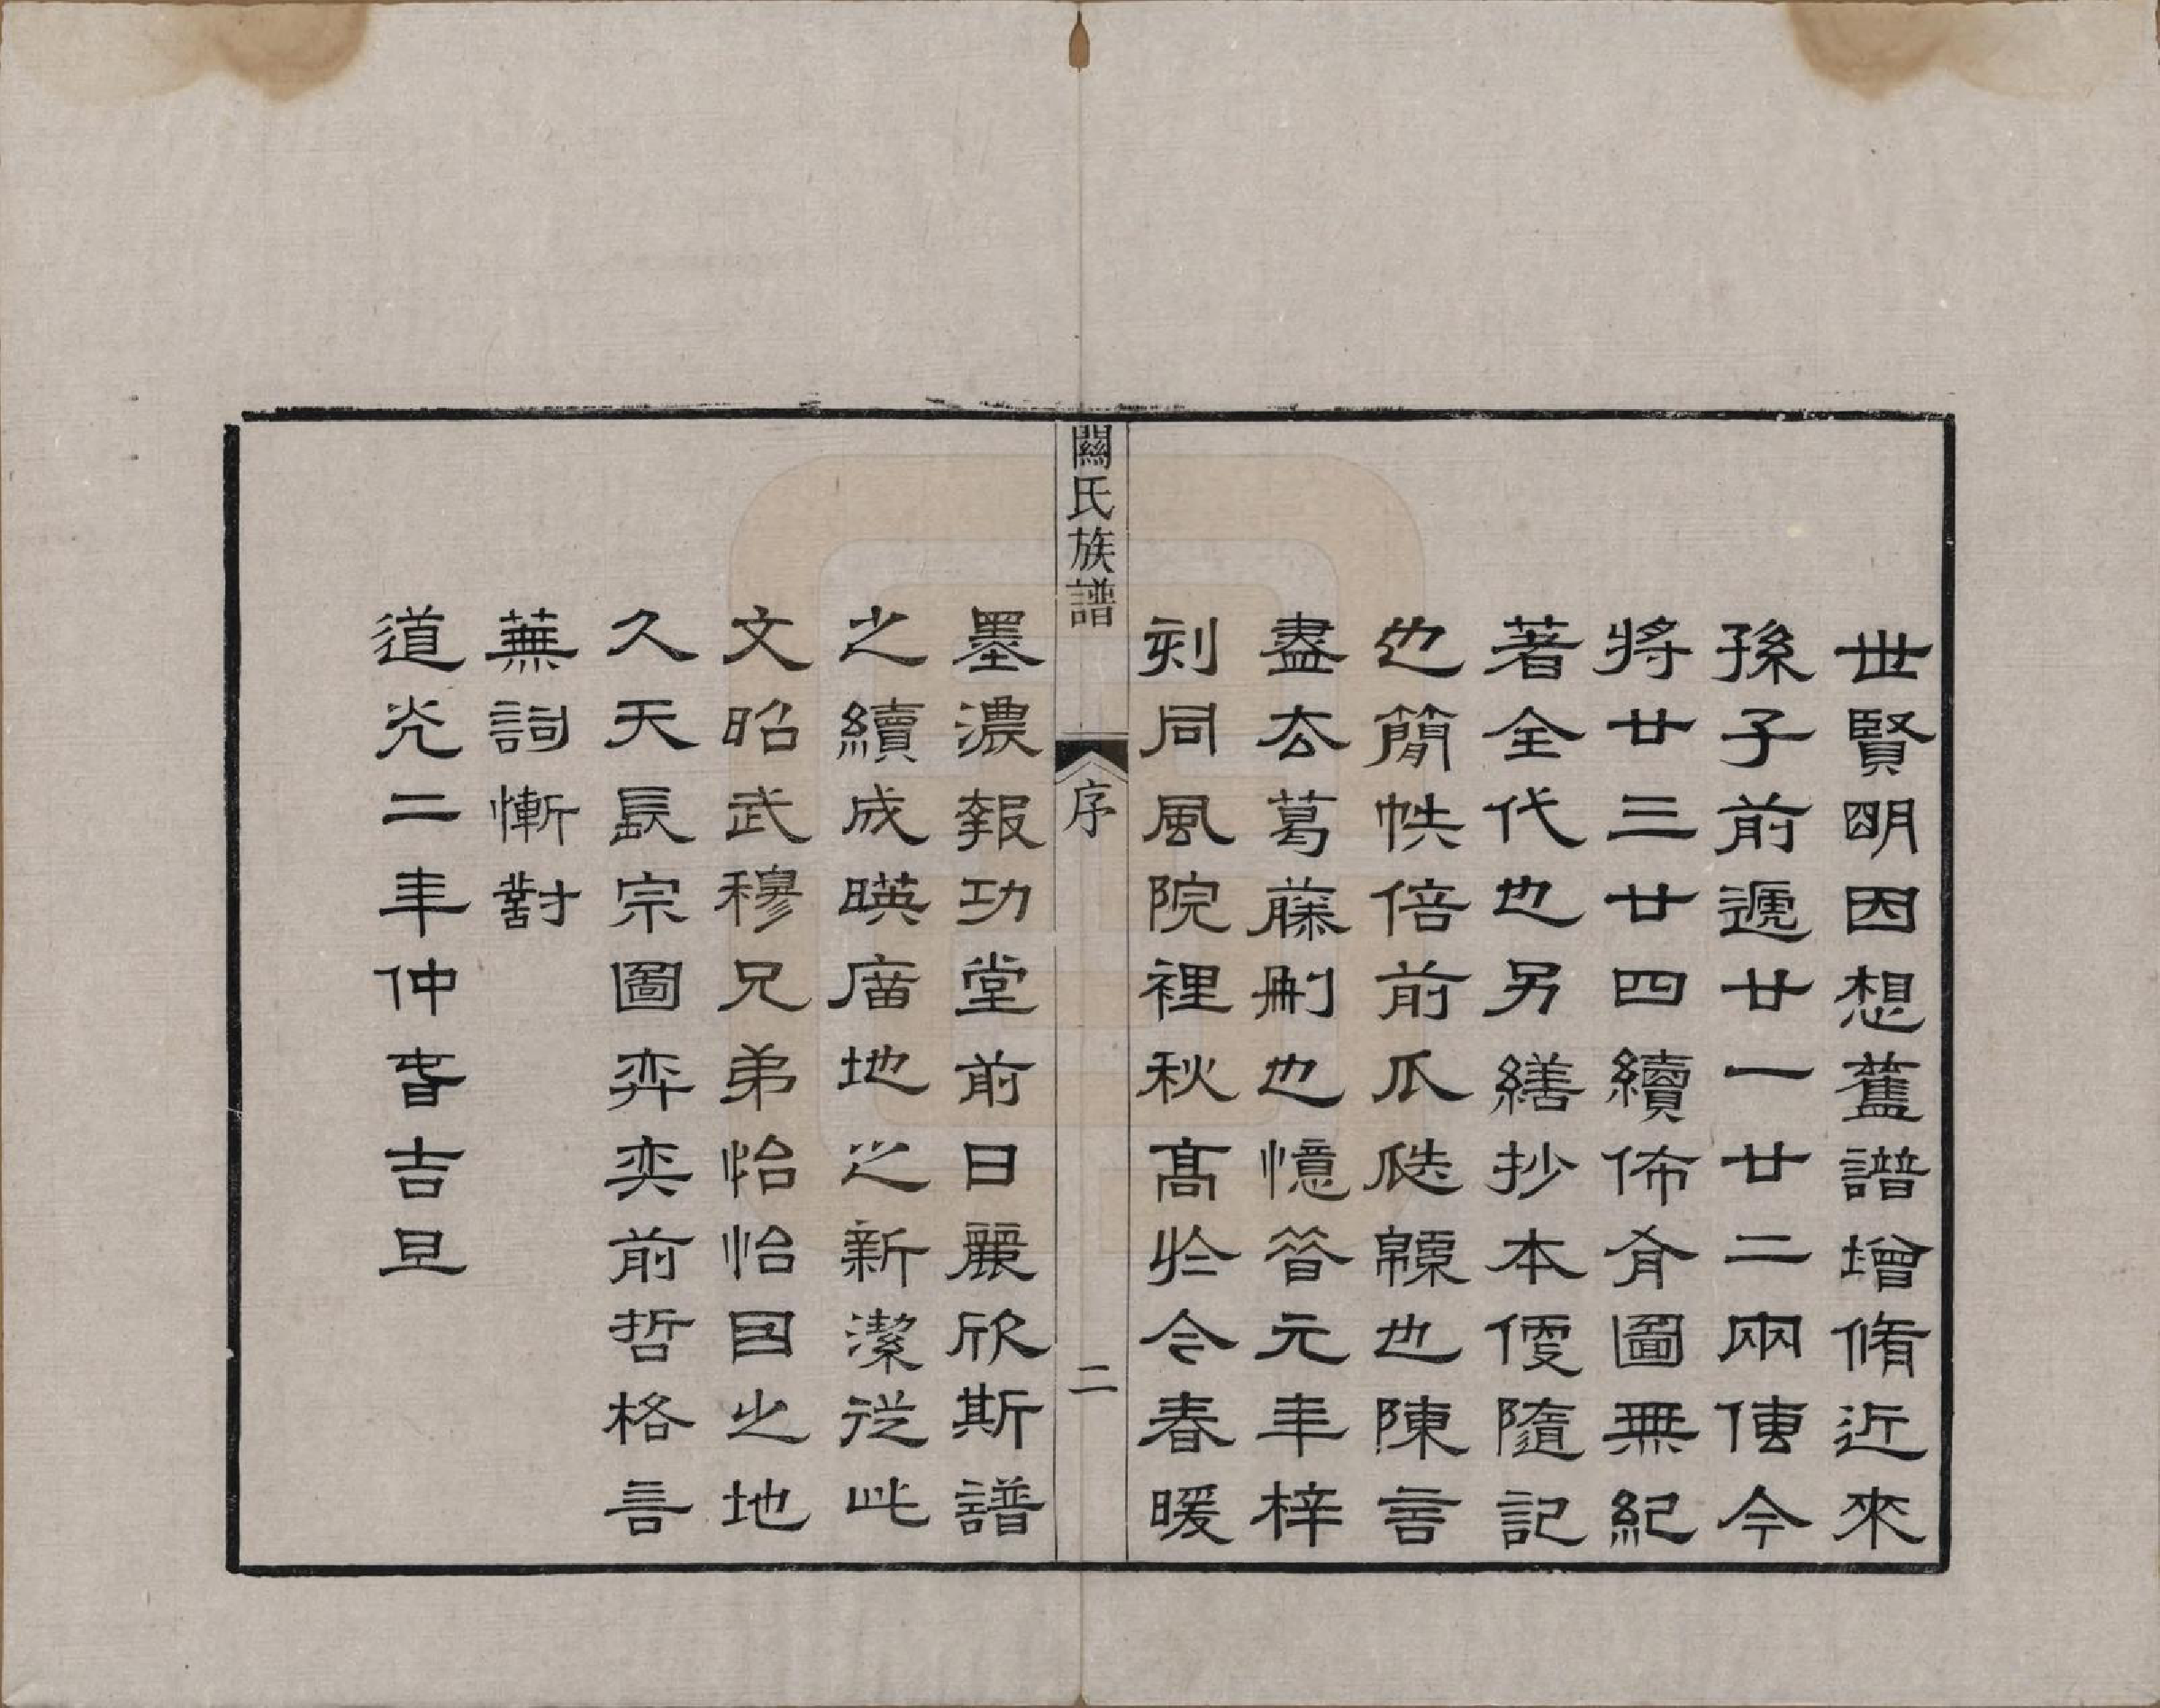 世賢明因想舊譜增脩近來
孫子前遞廿一廿二兩傳今
將廿三廿四續佈有圖無紀
著全代也另繕抄本便隨記
也簡帙倍前瓜瓞緜也陳言
盡去葛藤刪也憶昝元年梓
刻同風院裡秋高於今春暖
關氏族譜 序 二
墨濃報功堂前日麗欣斯譜
之續成暎庿地之新潔從此
文昭武穆兄弟怡怡因之地
久天長宗圖弈奕前哲格言
蕪詞慚對
道光二年仲春吉旦